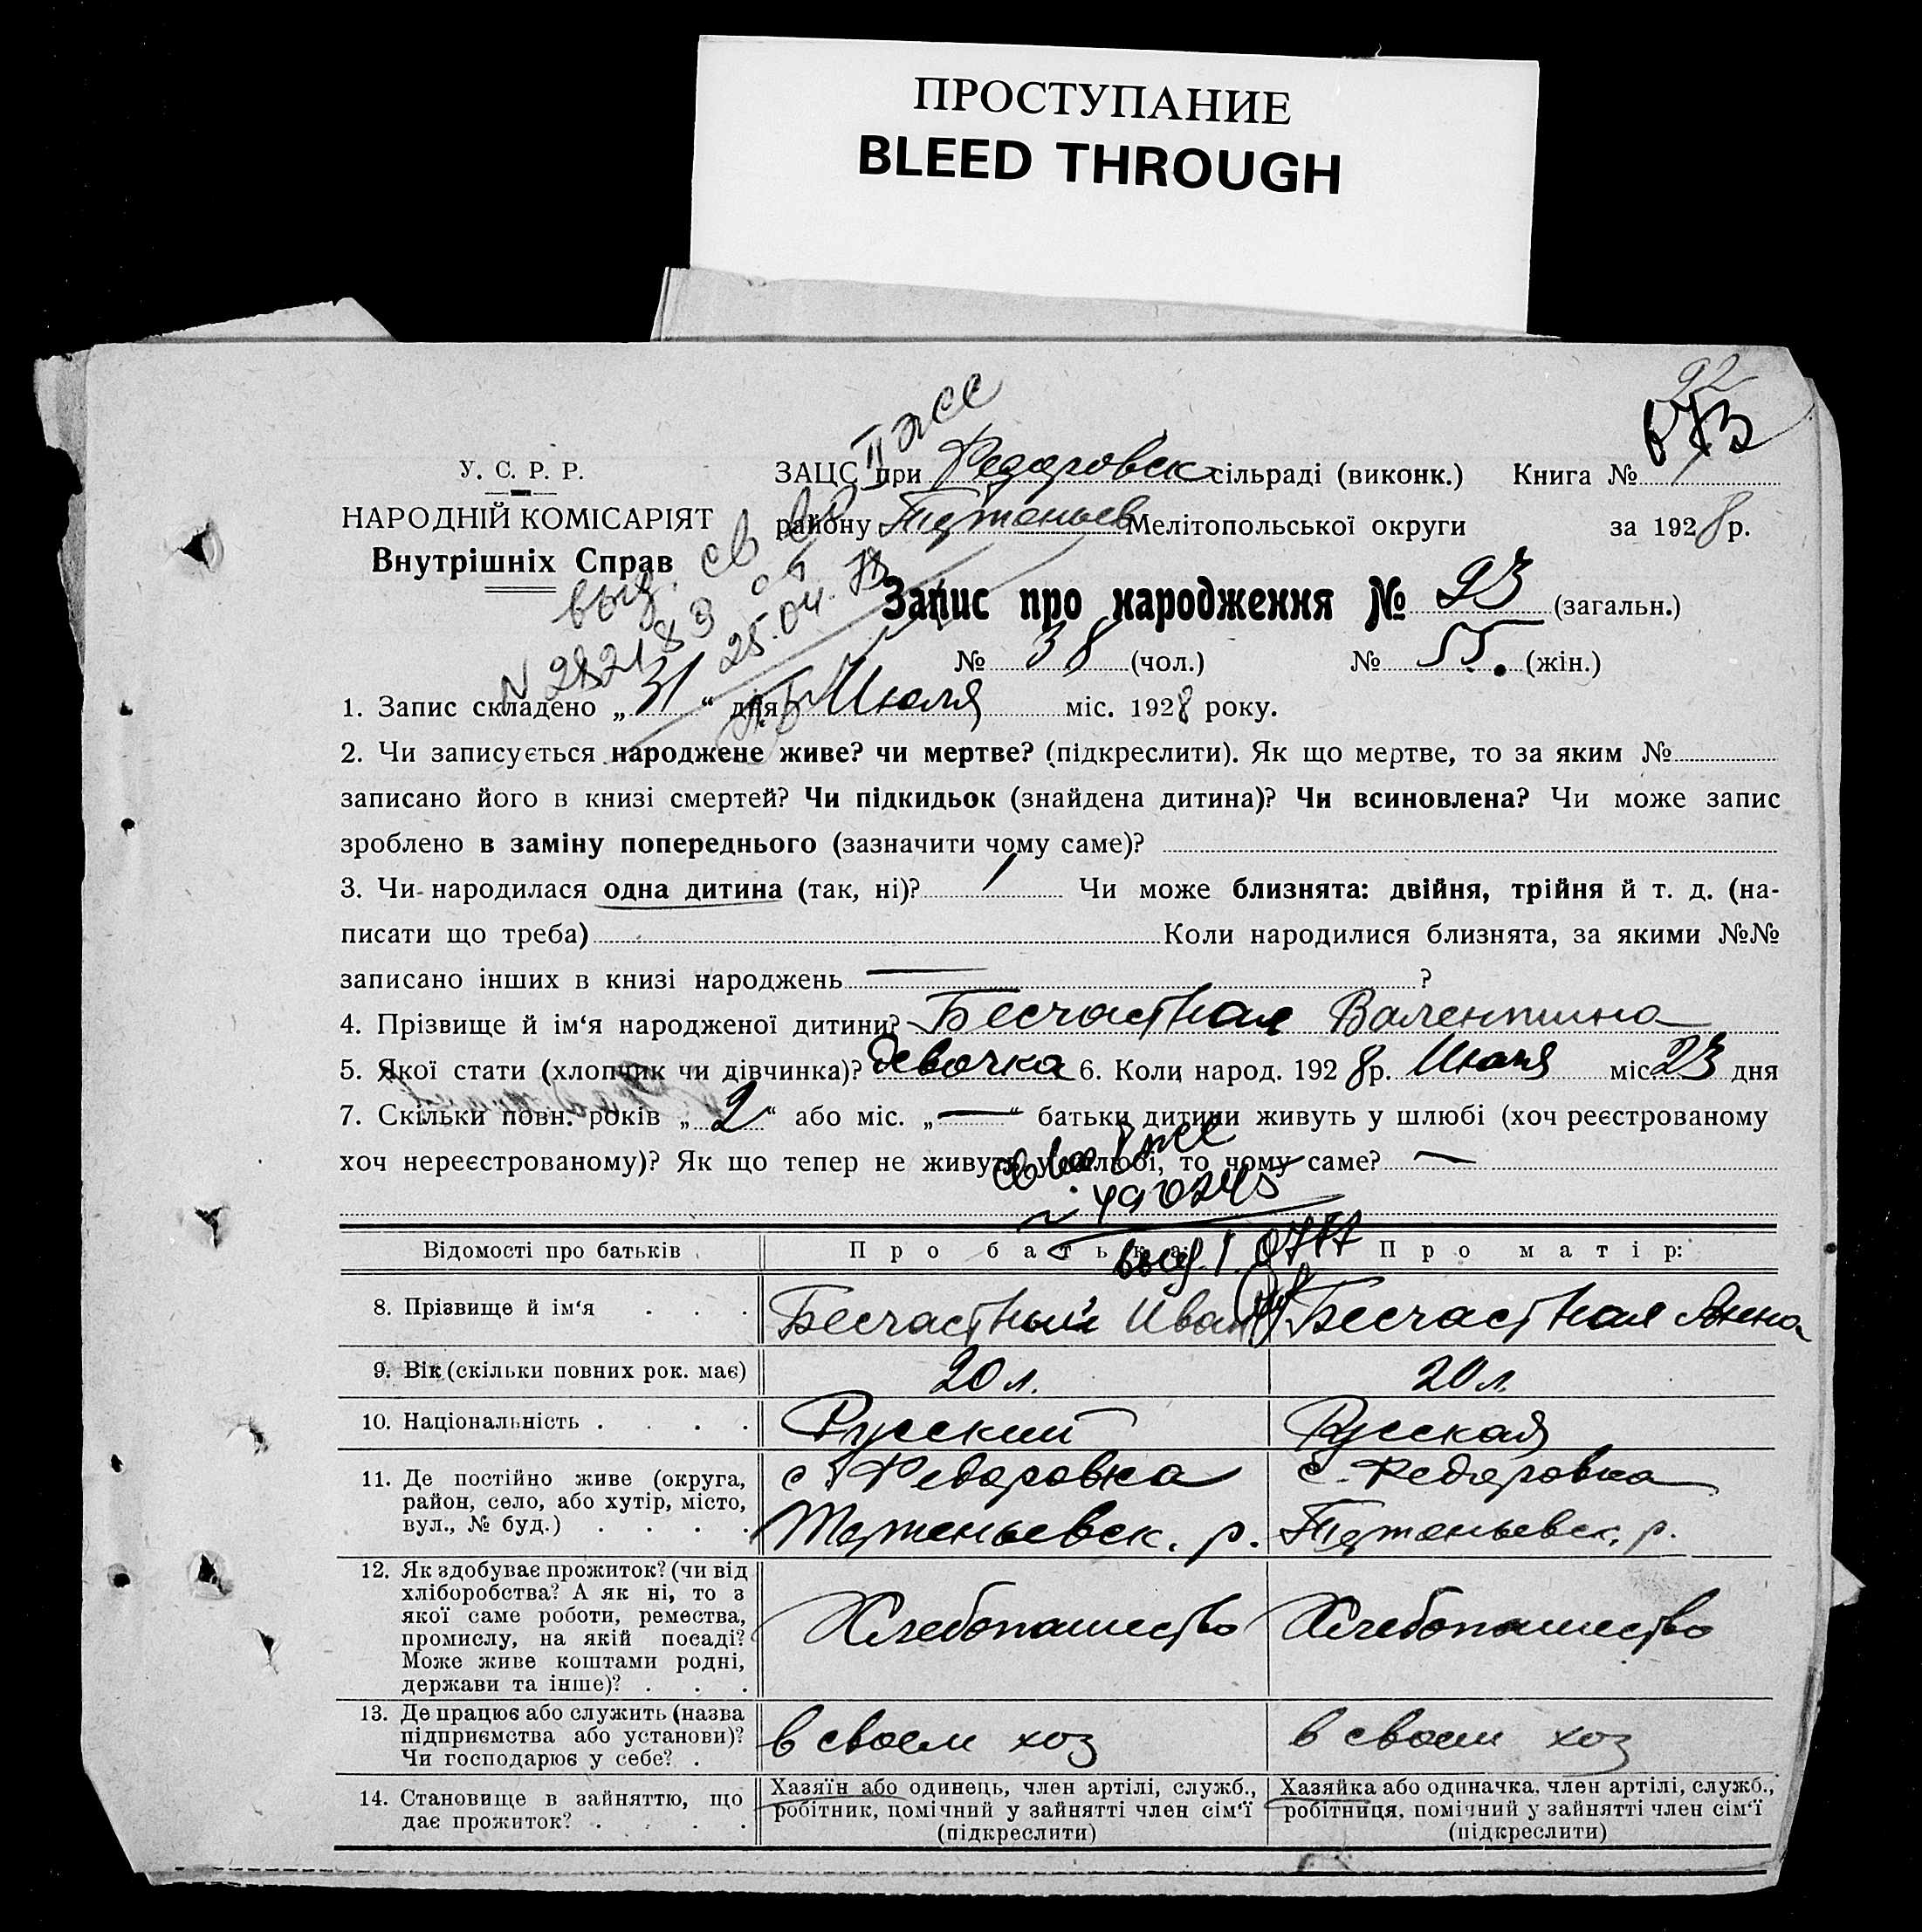 ПРОСТУПАНИЕ
BLEED THROUGH
92
У. С. Р. Р.
НАРОДНІЙ КОМІСАРІЯТ
Внутрішніх Справ
ЗАЦС при Федоровск сільраді (виконк.) Книга №
району Мелітопольської округи за 1928 р.
Запис про народження № 93 (загальн.)
№ 38 (чол.) № 55. (жін.)
выд. св во
N 282183 от
25.04.
1. Запис складено „31“ дня Июля міс. 1928 року.
2. Чи записується народжене живе? чи мертве? (підкреслити). Як що мертве, то за яким №
записано його в книзі смертей? Чи підкидьок (знайдена дитина)? Чи всиновлена? Чи може запис
зроблено в заміну попереднього (зазначити чому саме)?
3. Чи народилася одна дитина (так, ні)? 1 Чи може близнята: двійня, трійня й т. д. (на-
писати що треба) Коли народилися близнята, за якими №№
записано інших в книзі народжень — ?
4. Прізвище й ім‘я народженої дитини? Бесчастная Валентина
5. Якої стати (хлопчик чи дівчинка)? девочка 6. Коли народ. 1928 р. Июля міс. 23 дня
7. Скільки повн. років „2“ або міс. „—“ батьки дитини живуть у шлюбі (хоч реєстрованому
хоч нереєстрованому)? Як що тепер не живуть у шлюбі, то чому саме? —
Відомості про батьків Про батька: Про матір:
8. Прізвище й ім‘я . . . Бесчастный Иван Бесчастная Анна
9. Вік (скільки повних рок. має) 20 л. 20 л.
10. Національність . . . . Русский Русская
11. Де постійно живе (округа, с. Федоровка с. Федоровка
район, село, або хутір, місто,
вул., № буд.) . . . . р. р.
12. Як здобуває прожиток? (чи від
хліборобства? А як ні, то з
якої саме роботи, ремества, Хлебопашество Хлебопашество
промислу, на якій посаді?
Може живе коштами родні,
держави та інше)? . . .
13. Де працює або служить (назва
підприємства або установи)? в своем хоз в своем хоз
Чи господарює у себе? .
14. Становище в зайняттю, що Хазяїн або одинець, член артілі, служб., Хазяйка або одиначка, член артілі, служб.,
дає прожиток? . . . . робітник, помічний у зайнятті член сім‘ї робітниця, помічний у зайнятті член сім‘ї
(підкреслити) (підкреслити)